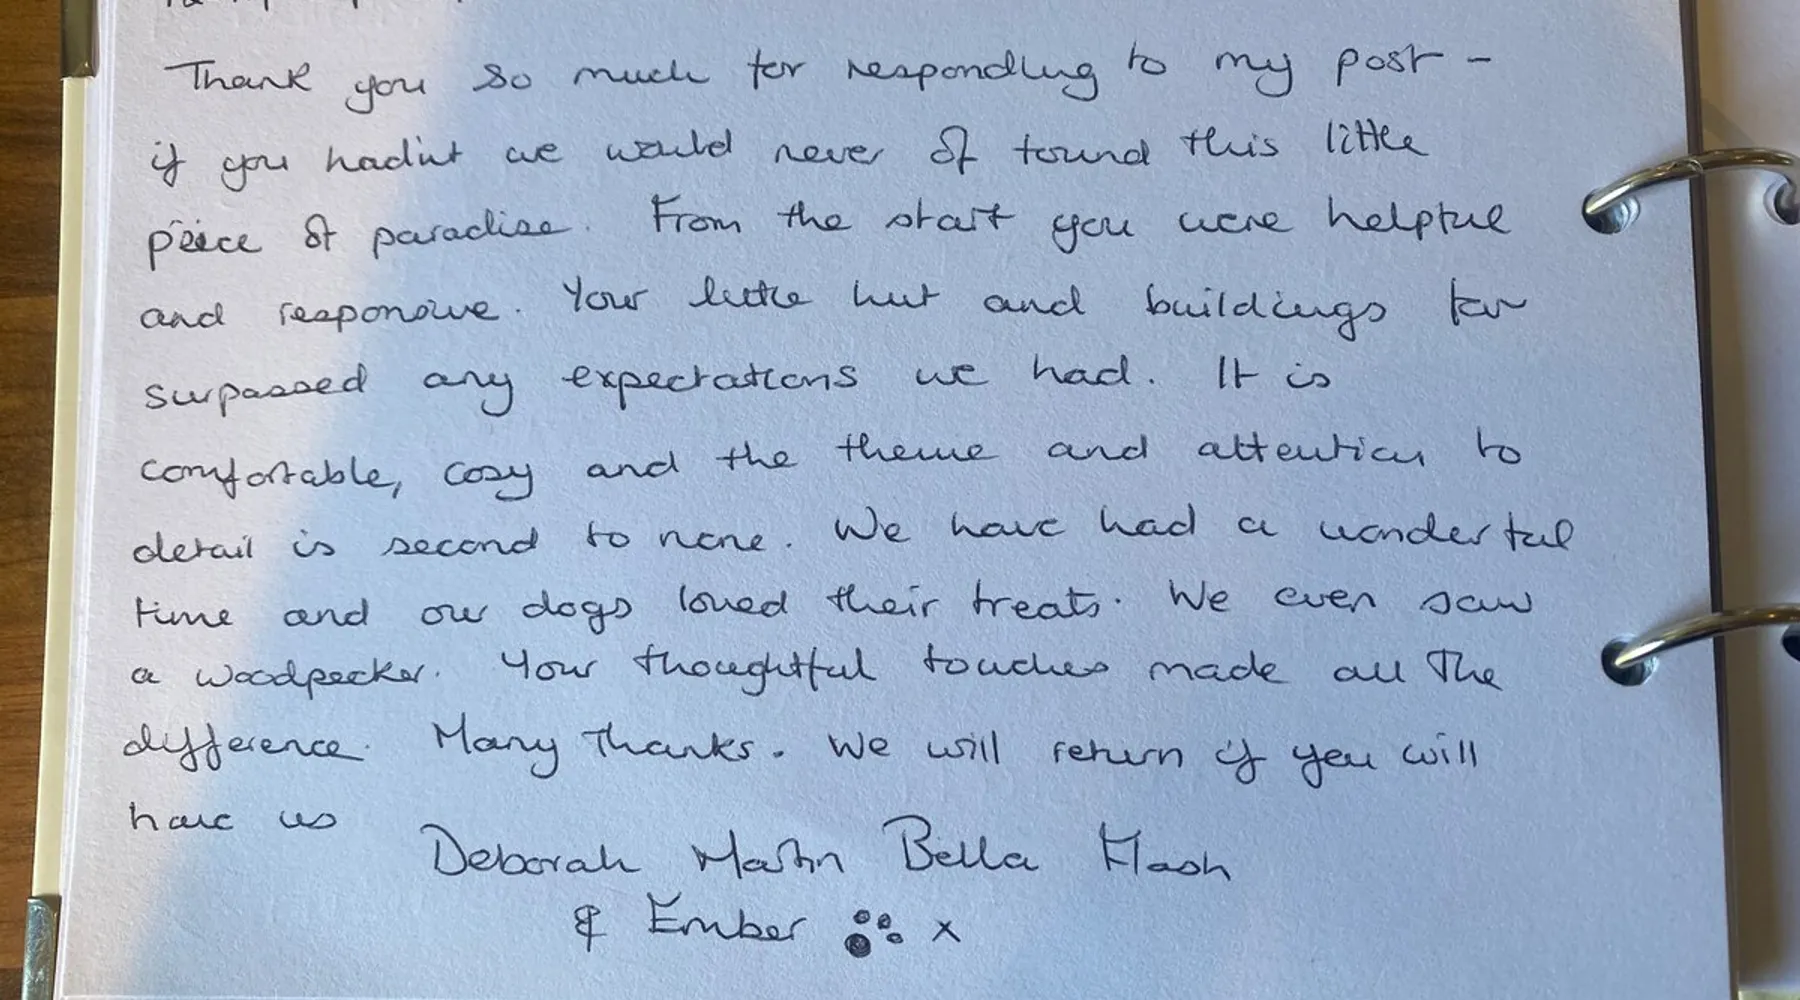 Thank you so much for responding to my post -
if you hadn't we would never of found this little
peice of paradise. From the start you were helpful
and responsive. Your little hut and buildings far
surpassed any expectations we had. It is
comfortable, cosy and the theme and attention to
detail is second to none. We have had a wonderful
time and our dogs loved their treats. We even saw
a woodpecker. Your thoughtful touches made all The
difference. Many Thanks. We will return if you will
have us
Deborah Martin Bella Flash
& Ember x